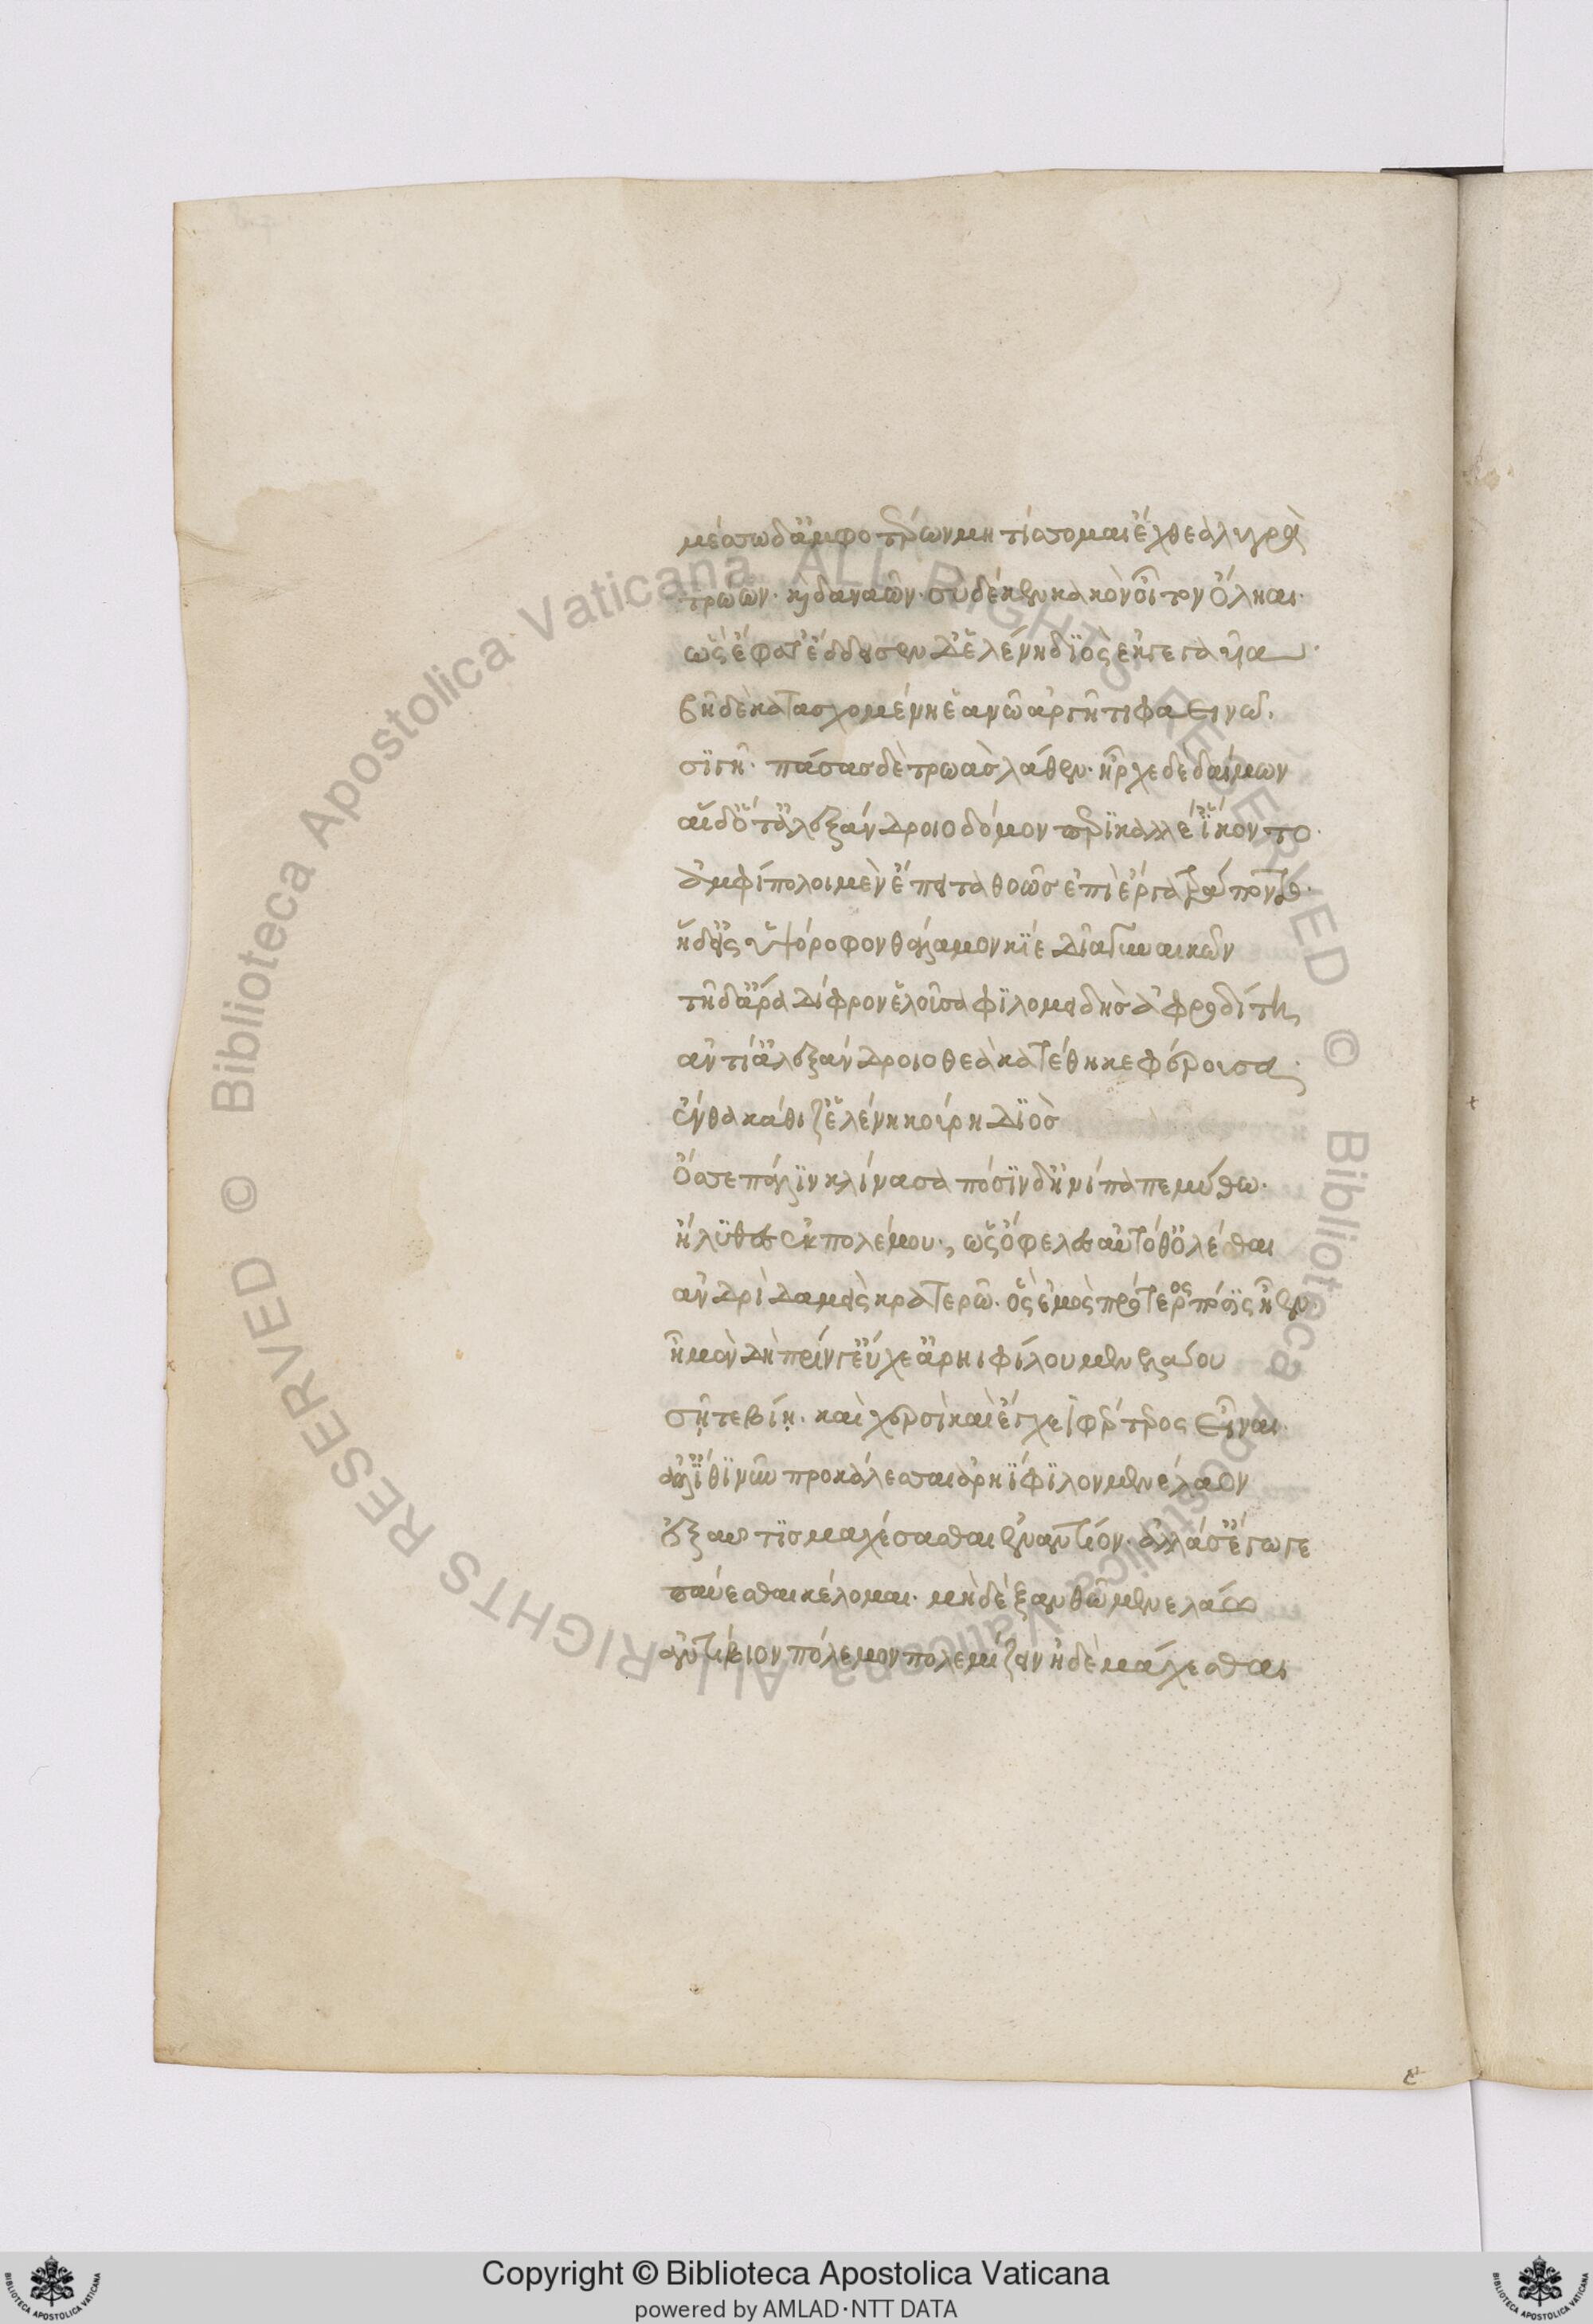 μέσσω δ' ἀμφοτέρων μητίσομαι ἔχθεα λυγρὰ
τρώων· καὶ δαναῶν· σὺ δέ κεν κακὸν οἶτον ὄληαι·
ὣς ἔφατ' ἔδδεισεν δ' ἑλένη διὸς ἐκγεγαυῖα·
βῆ δὲ κατασχομένη ἑανῶ ἀργῆτι φαεινῶ·
σιγῆ· πάσας δὲ τρωὰς λάθεν· ἦρχε δὲ δαίμων
αἱ δ' ὅτ' ἀλεξάνδροιο δόμον περικαλλέ' ἵκοντο·
ἀμφίπολοι μὲν ἔπειτα θοῶς ἐπὶ ἔργα τράποντο·
ἡ δ' εἰς ὑψόροφον θάλαμον κίε δῖα γυναικῶν
τῆ δ' ἄρα δίφρον ἑλοῦσα φιλομειδὴς ἀφροδίτη
ἀντί' ἀλεξάνδροιο θεὰ κατέθηκε φέρουσα·
ἔνθα κάθιζ' ἑλένη κούρη διὸς
ὄσσε πάλιν κλίνασα πόσιν δ' ἠνίπαπε μύθω·
ἤλυθες ἐκ πολέμου·, ὡς ὄφελες αὐτόθ' ὀλέσθαι
ἀνδρὶ δαμεὶς κρατερῶ· ὃς ἐμὸς πρότερος πόσις ἦεν·
ἦ μὲν δὴ πρίν γ' εὔχε' ἀρηιφίλου μενελάου
σῆ τε βίη· καὶ χερσὶ καὶ ἔγχεϊ φέρτερος εἶναι·
ἀλλ' ἴθι νῦν προκάλεσσαι ἀρηΐφιλον μενέλαον
ἐξαῦτις μαχέσασθαι ἐναντίον· ἀλλά σ' ἔγωγε
παύεσθαι κέλομαι· μὴ δὲ ξανθῶ μενελάω
ἀντίβιον πόλεμον πολεμίζειν ἠδὲ μάχεσθαι
© Biblioteca Apostolica Vaticana ALL RIGHTS RESERVED © Biblioteca Apostolica Vaticana ALL RIGHTS RESERVED
Copyright © Biblioteca Apostolica Vaticana
powered by AMLAD·NTT DATA